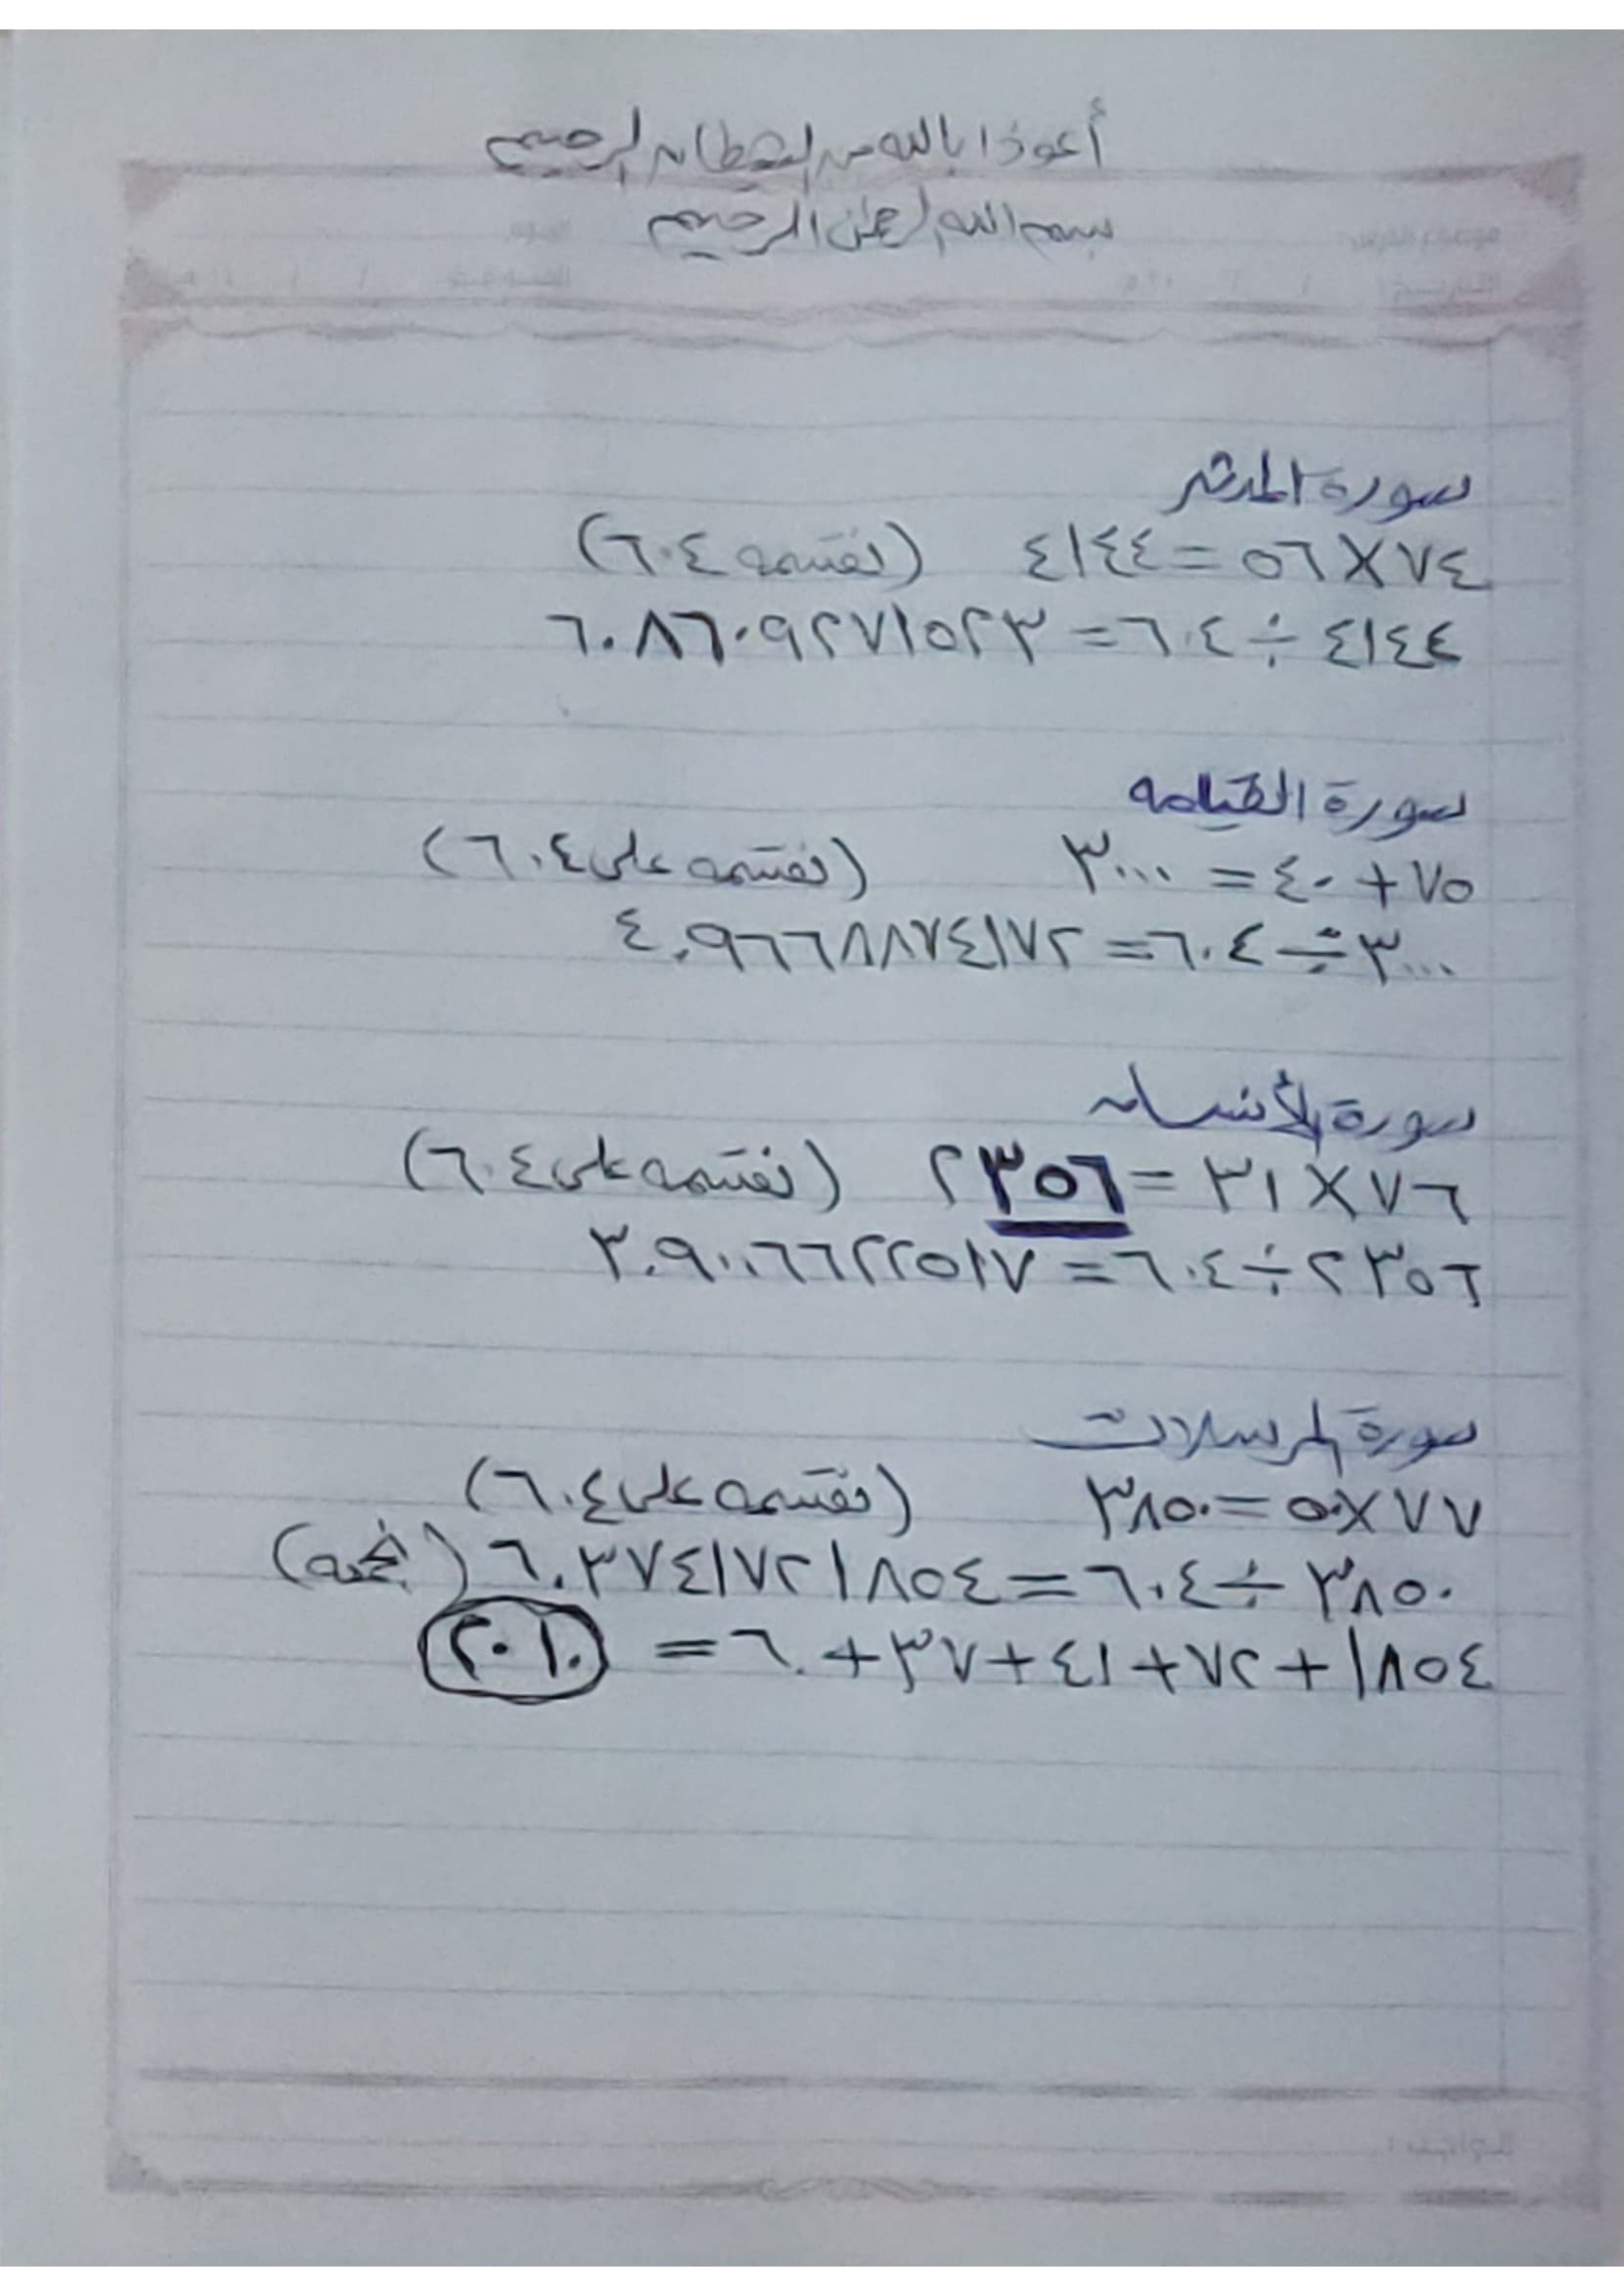 أعوذ بالله من الشيطان الرجيم
بسم الله الرحمن الرحيم
سورة المدثر
٧٤ × ٥٦ = ٤١٤٤ (نقسمه ٦٠٤)
٤١٤٤ ÷ ٦٠٤ = ٦.٨٦٠٩٢٧١٥٢٣
سورة القيامه
٧٥ + ٤٠ = ٣٠٠٠ (نقسمه على ٦٠٤)
٣٠٠٠ ÷ ٦٠٤ = ٤.٩٦٦٨٨٧٤١٧٢
سورة الأنسان
٧٦ × ٣١ = ٢٣٥٦ (نقسمه على ٦٠٤)
٢٣٥٦ ÷ ٦٠٤ = ٣.٩٠٠٦٦٢٢٥١٧
سورة المرسلات
٧٧ × ٥٠ = ٣٨٥٠ (نقسمه على ٦٠٤)
٣٨٥٠ ÷ ٦٠٤ = ٦.٣٧٤١٧٢١٨٥٤ (نجمعه)
١٨٥٤ + ٢٨ + ٤١ + ٣٧ + ٦٠ = ٢٠١٠